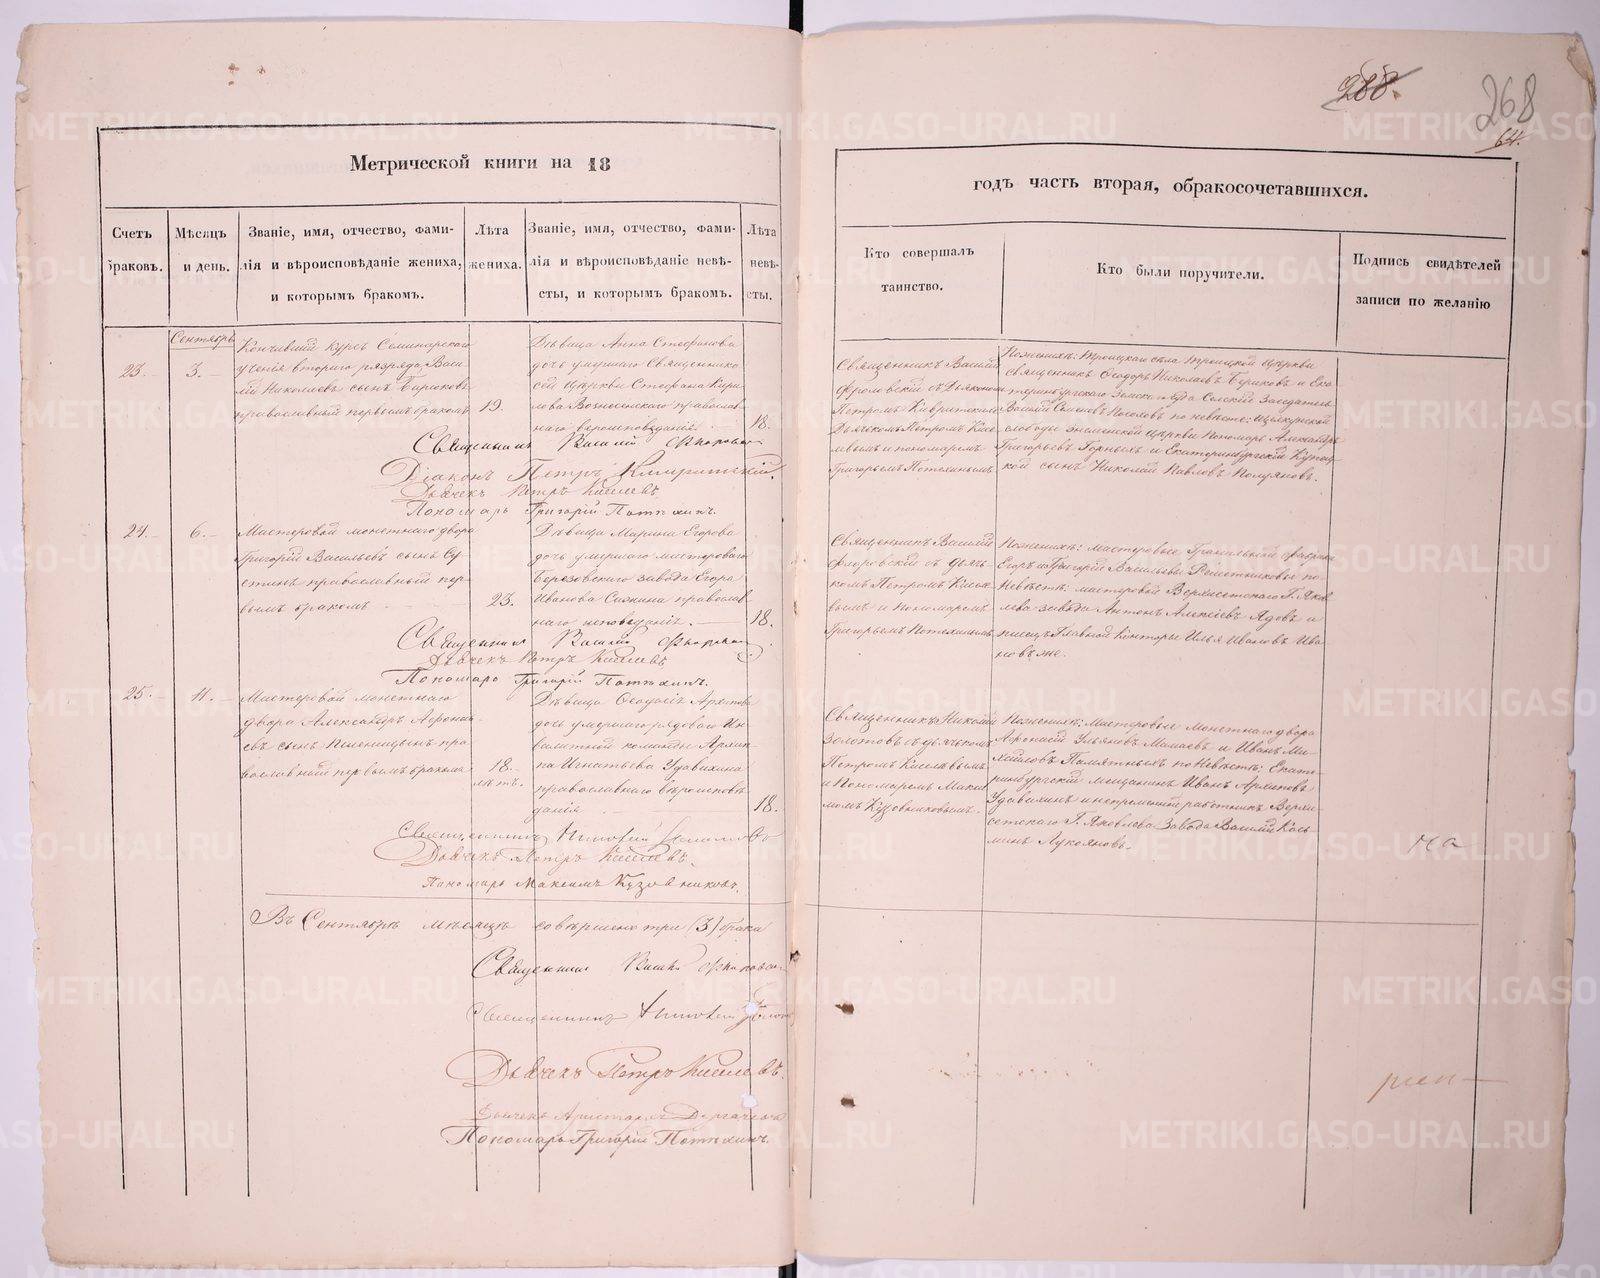 288.
268
64.
Метрической книги на 18
годъ часть вторая, обракосочетавшихся.
Счетъ браковъ.
Мѣсяцъ и день.
Званіе, имя, отчество, фами-
лія и вѣроисповѣданіе жениха,
и которымъ бракомъ.
Лѣта
жениха.
Званіе, имя, отчество, фами-
лія и вѣроисповѣданіе невѣ-
сты, и которымъ бракомъ.
Лѣта
невѣ-
сты.
Кто совершалъ
таинство.
Кто были поручители.
Подпись свидѣтелей
записи по желанію
Сентябрь
23.
3.
Кончившій курсъ Семинарскаго
ученія втораго разряда, Васи-
лій Николаевъ сынъ Бирюковъ
православный первымъ бракомъ
19.
Дѣвица Анна Стефанова
дочь умершаго Священника
сей Церкви Стефана Кири-
лова Вознесенскаго православ-
наго вѣроисповѣданія.
18.
Священникъ Василій
съ Діакономъ
Петромъ
Дьячкомъ Петромъ Кисе-
левымъ и пономаремъ
Григорьемъ Потѣхинымъ
По женихѣ: Троицкаго села Троицкой Церкви
священникъ Ѳеодоръ Николаевъ Бирюковъ и Ека-
теринбургскаго Земскаго Суда Сельскій Засѣдатель
Василій
слободы Знаменской Церкви пономарь Александръ
Григорьевъ Горныхъ и Екатеринбургскій Купец-
кой сынъ Николай Павловъ
Священникъ Василій
Діаконъ Петръ
Дьячекъ Петръ Киселевъ
Пономарь Григорій Потѣхинъ.
24.
6.
Мастеровой монетнаго двора
Григорій Васильевъ сынъ Су-
стинъ православный пер-
вымъ бракомъ
23.
Дѣвица Марина Егорова
дочь умершаго мастероваго
Березовскаго завода Егора
Иванова православ-
наго исповѣданія.
18.
Священникъ Василій
Флоровскій съ дьяч-
комъ Петромъ Кисел-
вымъ и Пономаремъ
Григорьемъ Потѣхинымъ
По женихѣ: мастеровые Гранильной фабрики
Егоръ и Григорій Васильевы Решетниковы по
Невѣстѣ: мастеровой Верхисетскаго Г. Яков-
лева завода Антонъ Алексѣевъ Ядовъ и
писецъ Главной Конторы Илья Ивановъ Ива-
новъ же.
Священникъ Василій
Дьячекъ Петръ Киселевъ
Пономарь Григорій Потѣхинъ.
25.
11.
Мастеровой монетнаго
двора Александръ Афонась-
евъ сынъ Пшеницынъ пра-
вославный первымъ бракомъ
18.
лѣтъ.
Дѣвица Ѳеодосія Архипова
дочь умершаго рядоваго Ин-
валидной команды Архи-
па Игнатьева Удавихина
православнаго вѣроисповѣ-
данія
18.
Священникъ Николай
Золотовъ съ дьячкомъ
Петромъ Киселевымъ
и Пономаремъ Макси-
момъ Кузовниковымъ.
По женихѣ: Мастеровые Монетнаго двора
Афонасій Ульяновъ Мамаевъ и Иванъ Ми-
хайловъ Памятныхъ по Невѣстѣ: Екате-
ринбургскій мещанинъ Иванъ Архиповъ
Удавихинъ и непремѣнный работникъ Верхи-
сетскаго Г. Яковлева Завода Василій Кось-
минъ Лукояновъ.
Священникъ Николай Золотовъ
Дьячекъ Петръ Киселевъ.
Пономарь Максимъ Кузовниковъ.
Въ Сентябрѣ мѣсяцѣ совершено три (3) брака
Священникъ Василій
Священникъ Николай Золотовъ
Дьячекъ Петръ Киселевъ.
Дьячекъ Аристархъ
Пономарь Григорій Потѣхинъ.
METRIKI.GASO-URAL.RU